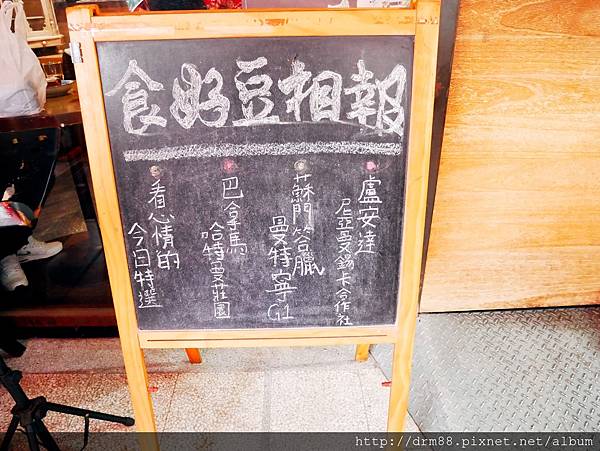 食好豆相報
盧安達
尼亞曼錫卡合作社
蘇門答臘
曼特寧G1
巴拿馬
哈特曼莊園
看心情的
今日特選
http://drm88.pixnet.net/album